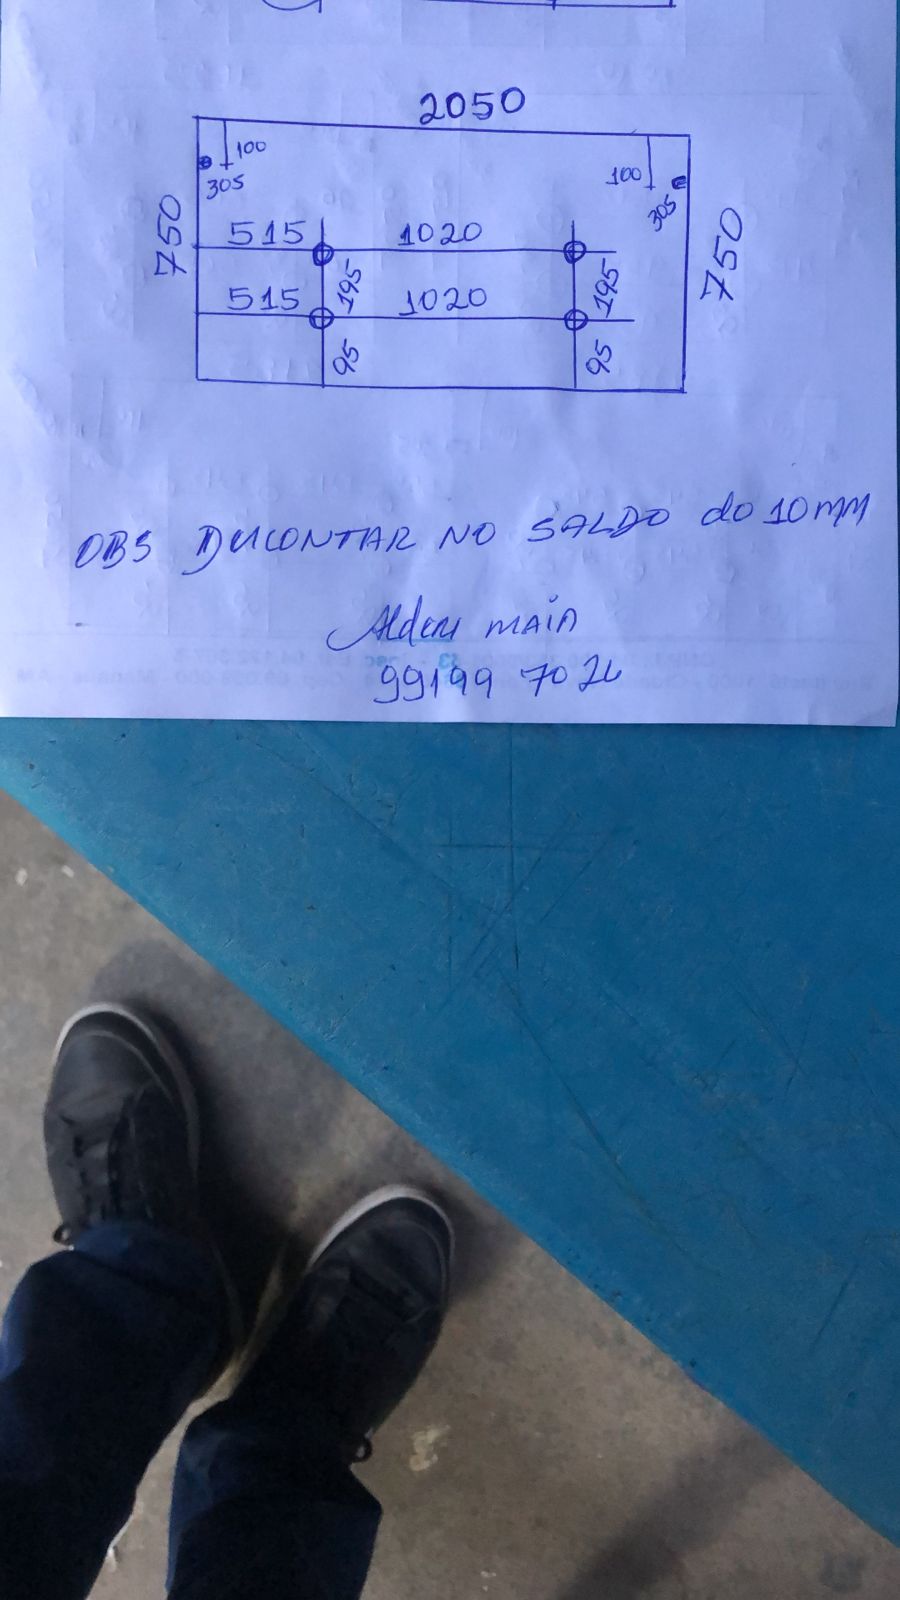 2050
100
305
100
305
750
750
515 1020
195 195
515 1020
95 95
OBS DESCONTAR NO SALDO do 10MM
MAIA
99199